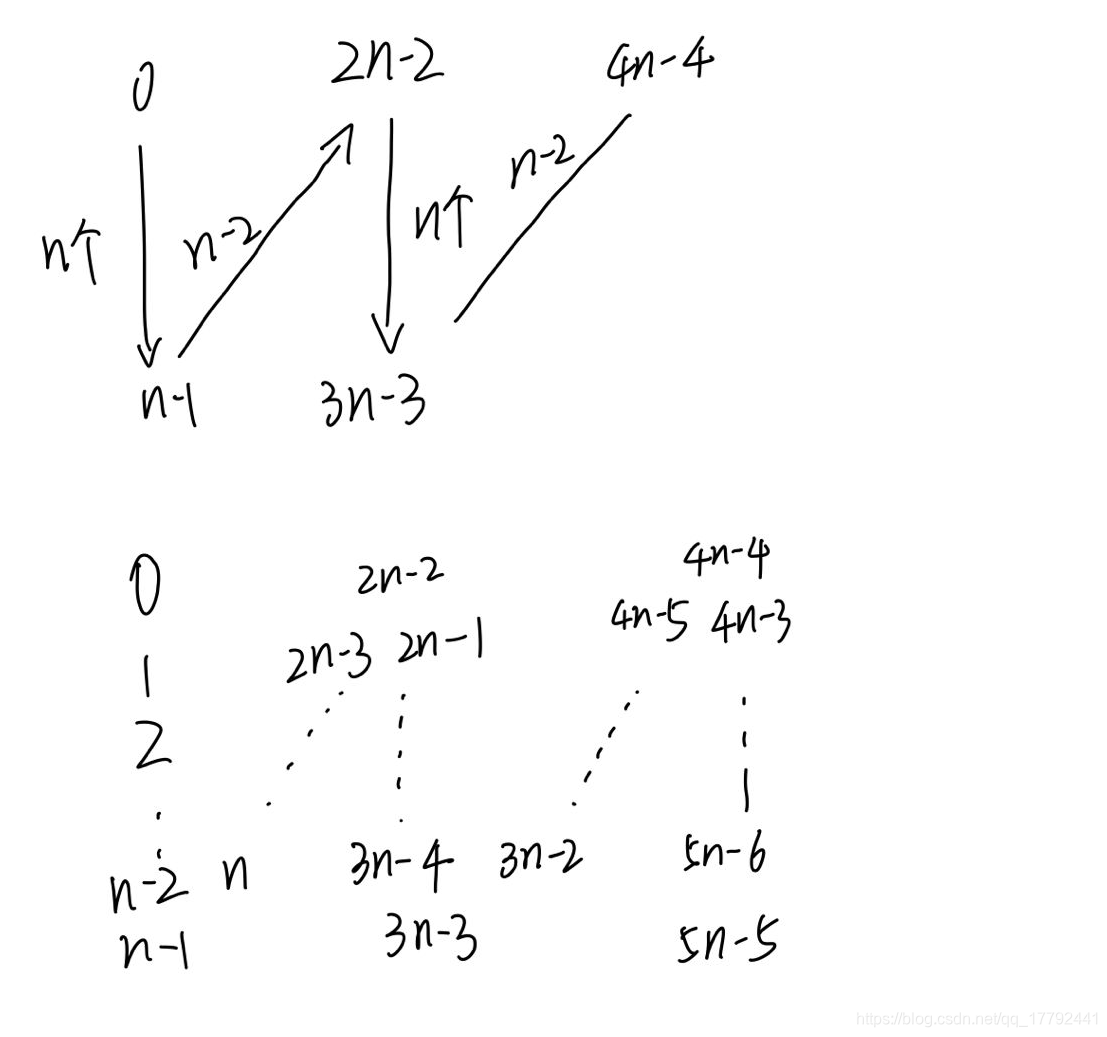 0 2n-2 4n-4
n-2
n个 n-2 n个
n-1 3n-3
0 2n-2 4n-4
1 2n-3 2n-1 4n-5 4n-3
2
n-2 n 3n-4 3n-2 5n-6
n-1 3n-3 5n-5
https://blog.csdn.net/qq_17792441